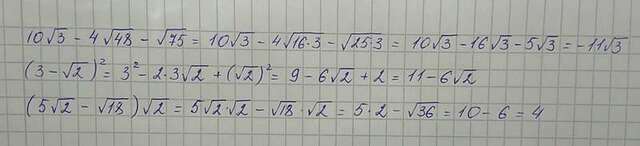 10√3 - 4√48 - √75 = 10√3 - 4√16·3 - √25·3 = 10√3 - 16√3 - 5√3 = -11√3
(3 - √2)² = 3² - 2·3√2 + (√2)² = 9 - 6√2 + 2 = 11 - 6√2
(5√2 - √18)√2 = 5√2√2 - √18·√2 = 5·2 - √36 = 10 - 6 = 4